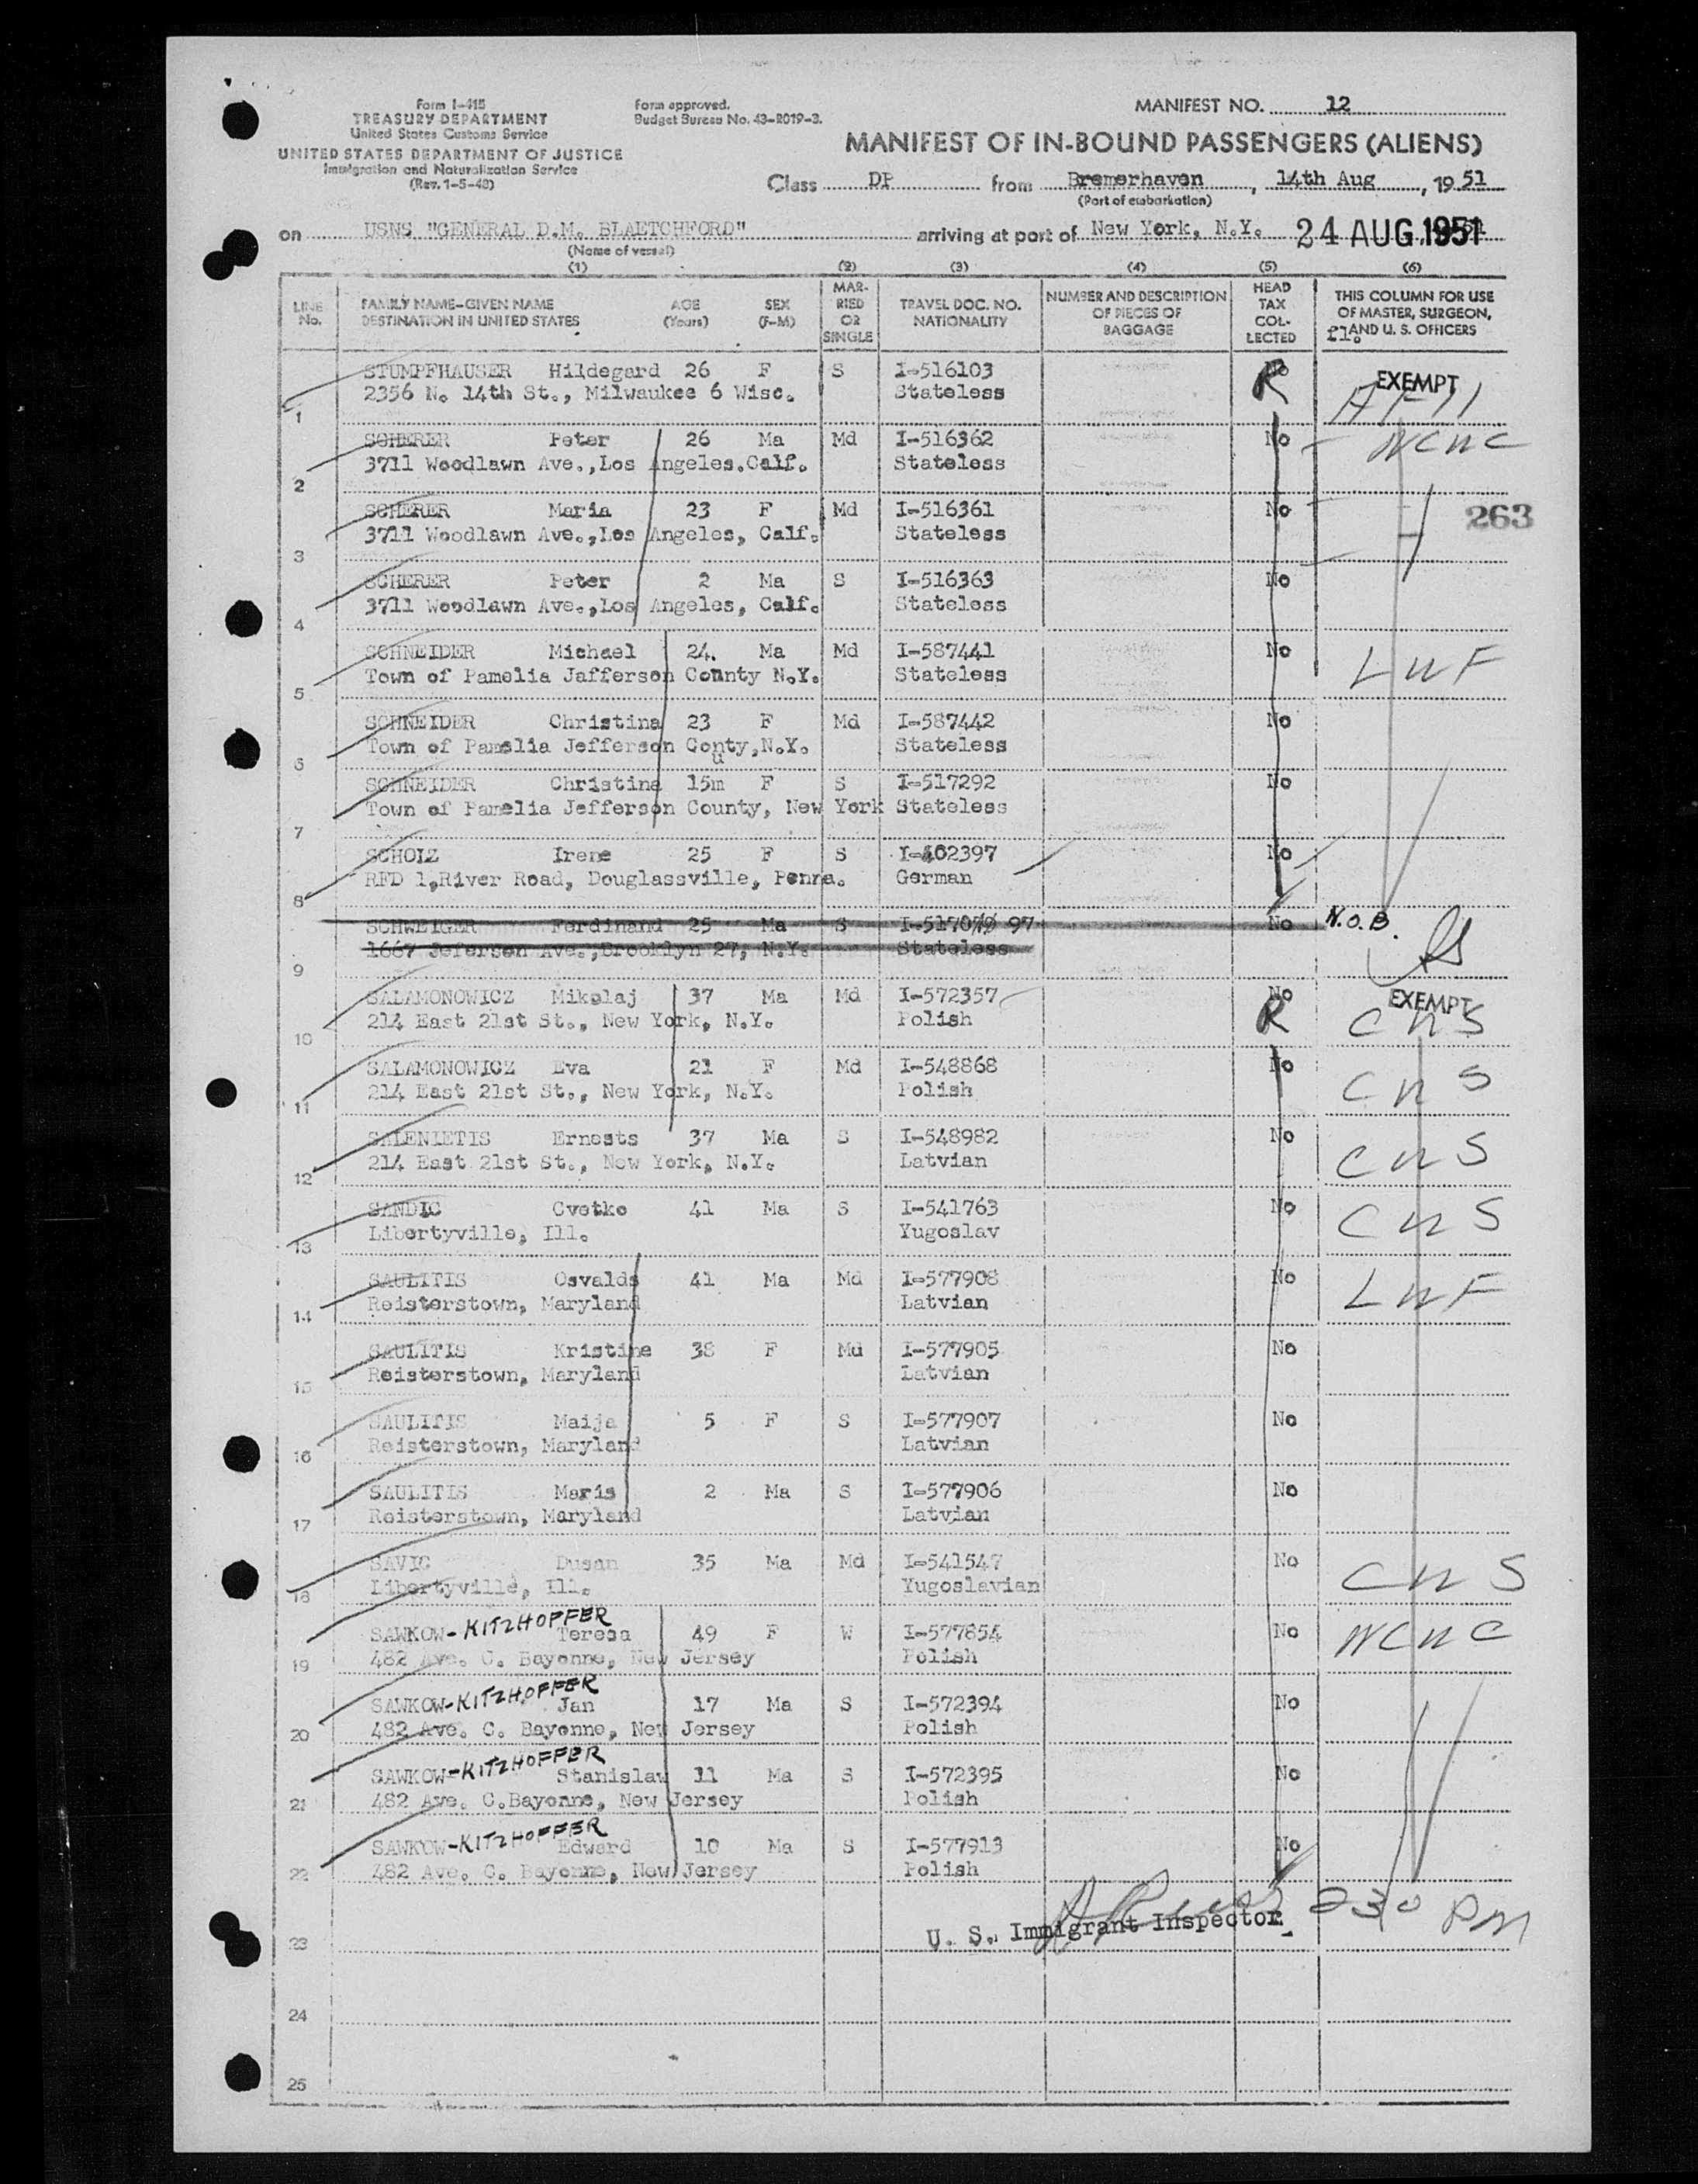 Form I-415
TREASURY DEPARTMENT
United States Customs Service
UNITED STATES DEPARTMENT OF JUSTICE
Immigration and Naturalization Service
(Rev. 1-5-48)
Form approved.
Budget Bureau No. 43-R019-3.
MANIFEST NO. 12
MANIFEST OF IN-BOUND PASSENGERS (ALIENS)
Class DP from Bremerhaven, 14th Aug, 1951
(Port of embarkation)
on USNS "GENERAL D.M. BLAETCHFORD" arriving at port of New York, N.Y. 24 AUG 1951
(Name of vessel)
(1) (2) (3) (4) (5) (6)
LINE No.
FAMILY NAME-GIVEN NAME AGE SEX
DESTINATION IN UNITED STATES (Years) (F-M)
MAR-RIED OR SINGLE
TRAVEL DOC. NO. NATIONALITY
NUMBER AND DESCRIPTION OF PIECES OF BAGGAGE
HEAD TAX COL-LECTED
THIS COLUMN FOR USE OF MASTER, SURGEON, AND U. S. OFFICERS
STUMPFHAUSER Hildegard 26 F S I-516103 R EXEMPT
2356 No 14th St., Milwaukee 6 Wisc. Stateless
1
SCHERER Peter 26 Ma Md I-516362 No WCNC
3711 Woodlawn Ave.,Los Angeles.Calf. Stateless
2
SCHERER Maria 23 F Md I-516361 No 263
3711 Woodlawn Ave.,Los Angeles, Calf. Stateless
3
SCHERER Peter 2 Ma S I-516363 No
3711 Woodlawn Ave.,Los Angeles, Calf. Stateless
4
SCHNEIDER Michael 24. Ma Md I-587441 No LWF
Town of Pamelia Jafferson County N.Y. Stateless
5
SCHNEIDER Christina 23 F Md I-587442 No
Town of Pamelia Jefferson Conty,N.Y. Stateless
u
6
SCHNEIDER Christina 15m F S I-517292 No
Town of Pamelia Jefferson County, New York Stateless
7
SCHOLZ Irene 25 F S I-402397 No
RFD 1,River Road, Douglassville, Penna. German
8
SCHWEIGER Ferdinand 25 Ma S 97 No N.O.B.
1667 Jeferson Ave.,Brooklyn 27, N.Y. Stateless
9
SALAMONOWICZ Mikolaj 37 Ma Md I-572357 No EXEMPT
214 East 21st St., New York, N.Y. Polish R CWS
10
SALAMONOWICZ Eva 21 F Md I-548868 No CWS
214 East 21st St., New York, N.Y. Polish
11
SALENIETIS Ernests 37 Ma S I-548982 No CWS
214 East 21st St., New York, N.Y. Latvian
12
SANDIC Cvetko 41 Ma S I-541763 No CWS
Libertyville, Ill. Yugoslav
13
SAULITIS Osvalds 41 Ma Md I-577908 No LWF
Reisterstown, Maryland Latvian
14
SAULITIS Kristine 38 F Md I-577905 No
Reisterstown, Maryland Latvian
15
SAULITIS Maija 5 F S I-577907 No
Reisterstown, Maryland Latvian
16
SAULITIS Maris 2 Ma S I-577906 No
Reisterstown, Maryland Latvian
17
SAVIC Dusan 35 Ma Md I-541547 No CWS
Libertyville, Ill. Yugoslavian
18
SAWKOW-KITZHOFFER Teresa 49 F W I-577854 No WCNC
482 Ave. C. Bayonne, New Jersey Polish
19
SAWKOW-KITZHOFFER Jan 17 Ma S I-572394 No
482 Ave. C. Bayonne, New Jersey Polish
20
SAWKOW-KITZHOFFER Stanislaw 11 Ma S I-572395 No
482 Ave. C.Bayonne, New Jersey Polish
21
SAWKOW-KITZHOFFER Edward 10 Ma S I-577913 No
482 Ave. C. Bayonne, New Jersey Polish
22
U. S. Immigrant Inspector 230 PM
23
24
25